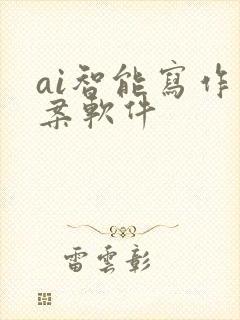 ai智能寫作
案軟件
雷雲彰